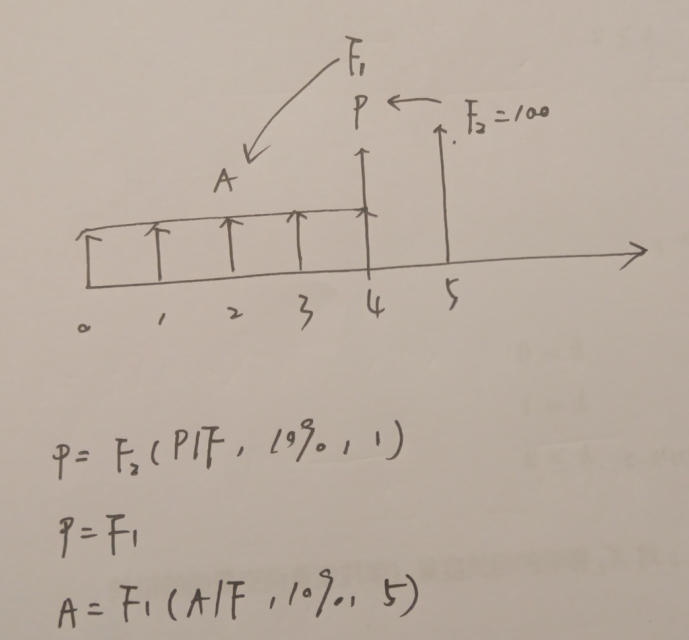 F₁
P
F₂=100
A
0 1 2 3 4 5
P= F₂(P/F, 10%, 1)
P=F₁
A= F₁(A/F, 10%, 5)